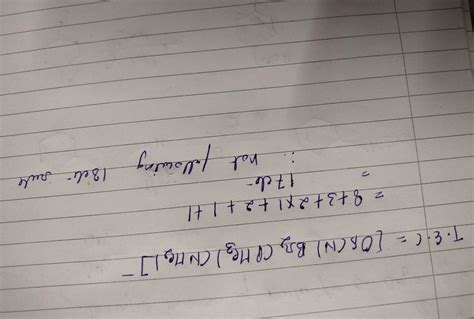 T.E.C = [Os(N) Br₂ (PMe₃) (NMe₃)]⁻
= 8+3+2×1+2+1+1
= 17e-
∴ not following 18e- rule